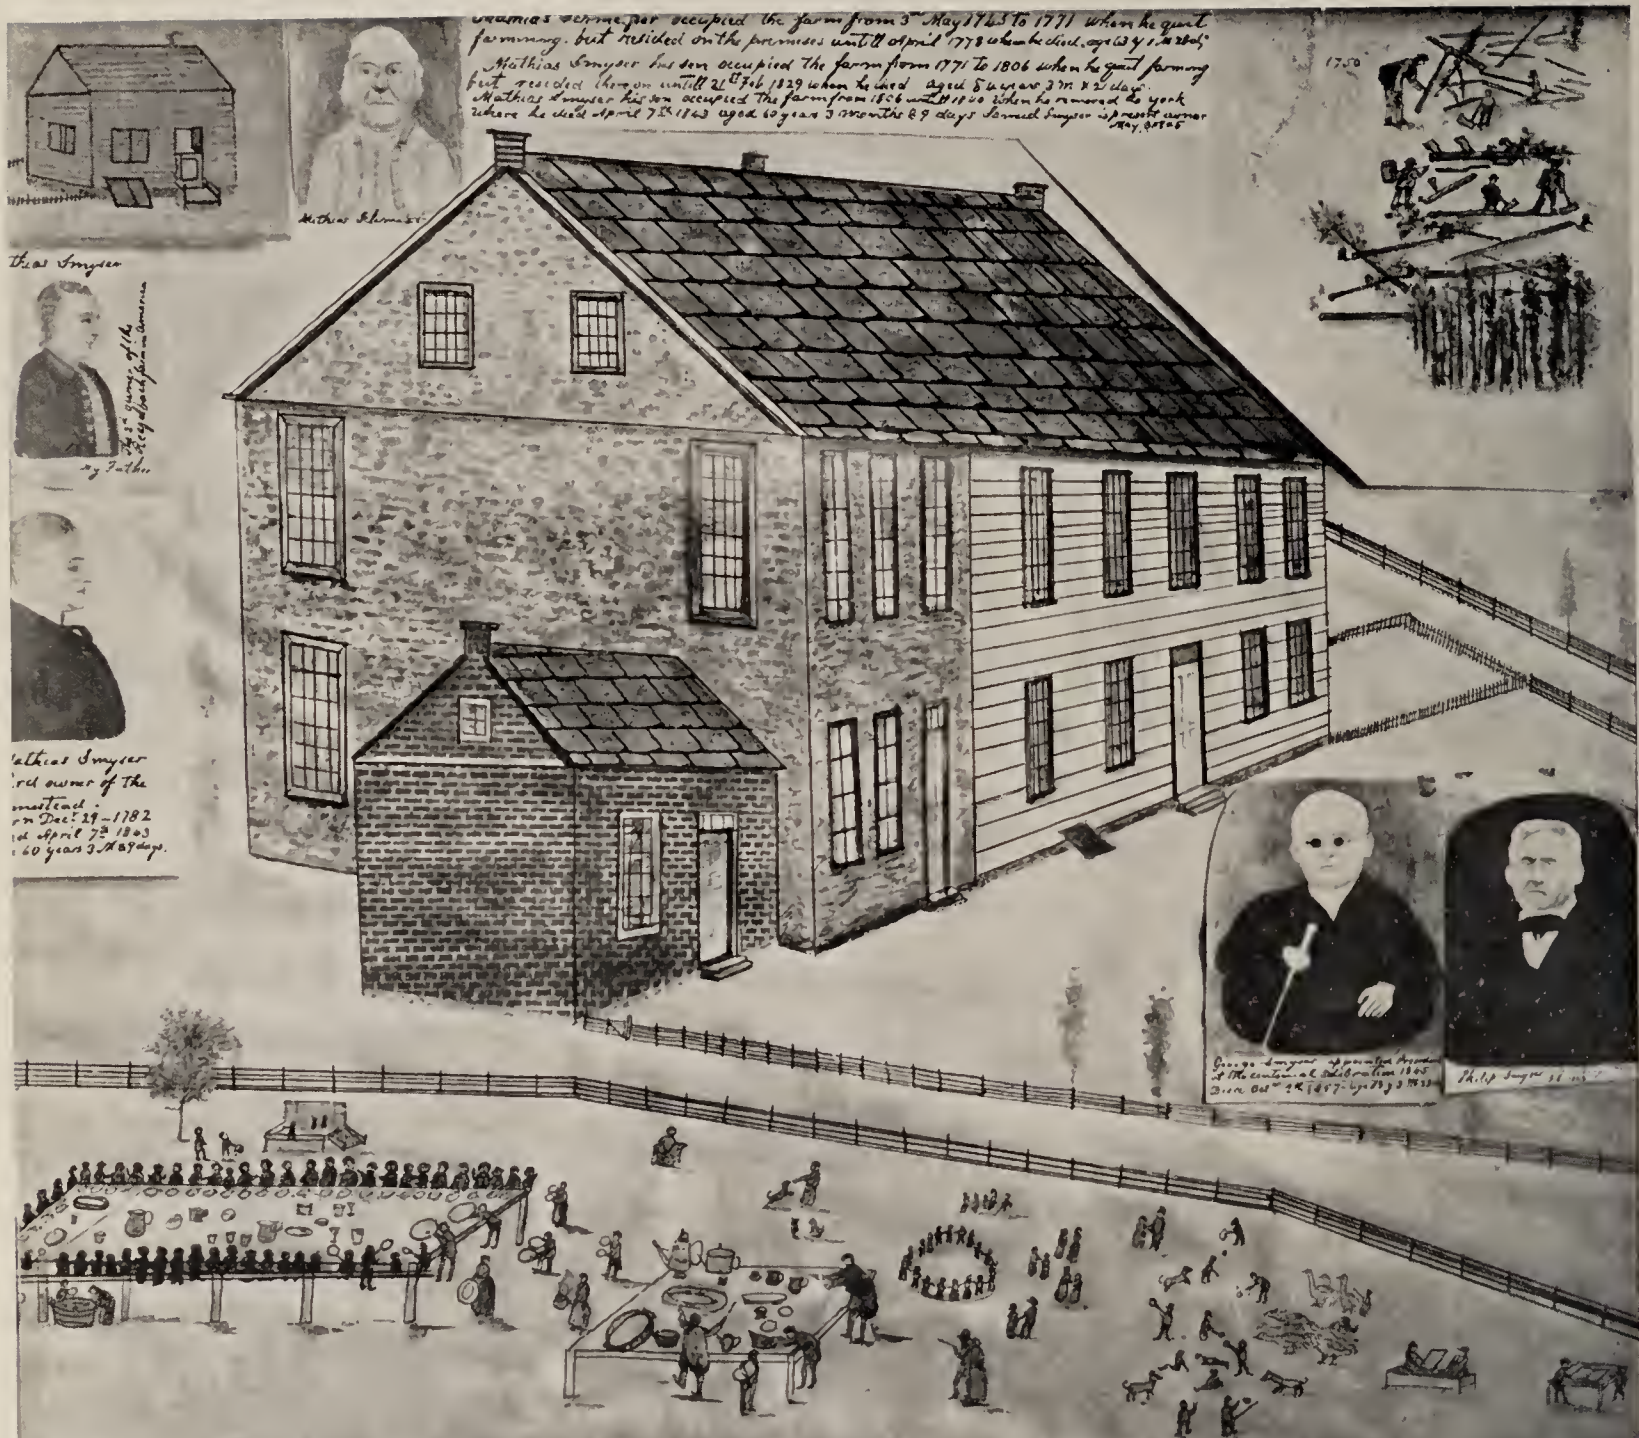 occupied the farm from 3rd May 1745 to 1771 when he quit
farmming. but resided on the premises untill April 1778 when he died. age 63 y
Mathias Smyser his son occupied the farm from 1771 to 1806 when he quit farming
but resided thereon untill 21st Feb. 1829 when he died aged 84 years 3 m days.
Mathias Smyser his son occupied the farm from 1806 untill 1840 when he removed to york
where he died April 7th 1843 aged 60 years 3 months & 9 days Samuel Smyser is present owner
May 1845
1750
Mathias
thias Smyser
of the
in america
my Father
athias Smyser
ird owner of the
mestead.
rn Dec. 29-1782
ed April 7th 1843
60 years 3 M & 9 days.
George Smyser appointed
at the centenial Selibration 1845
Born
Philip Smyser